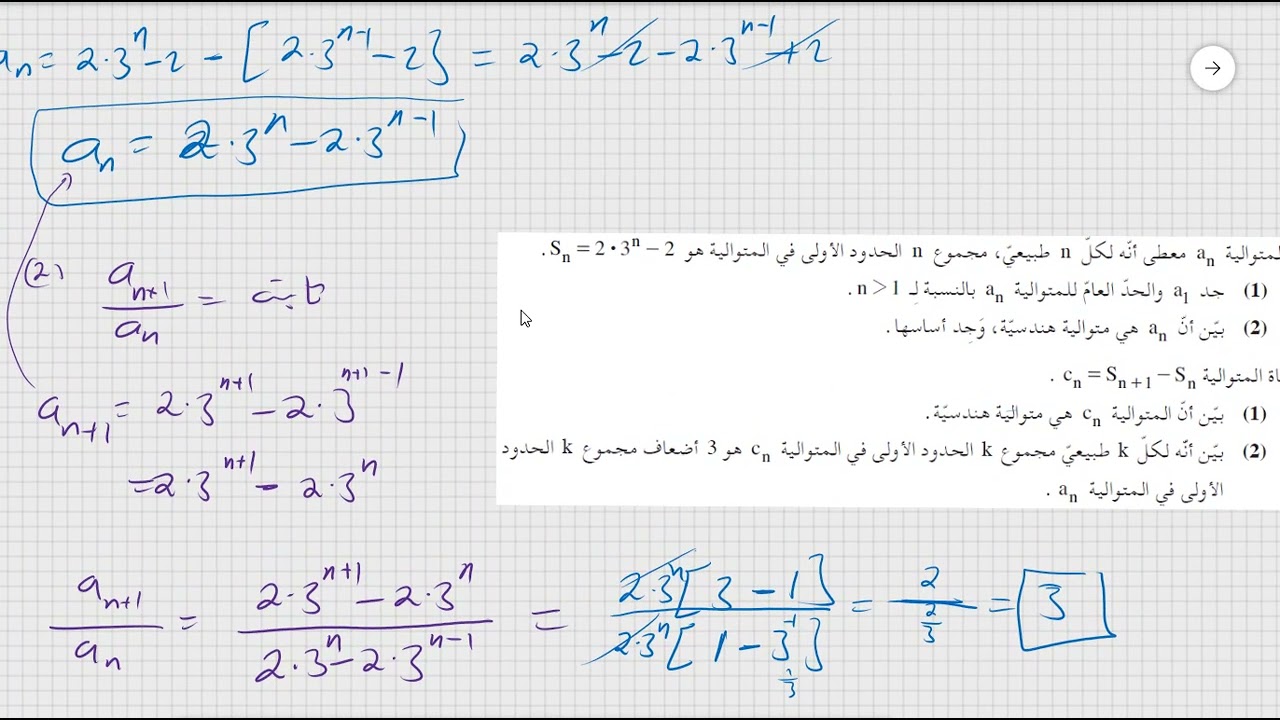 aₙ = 2·3ⁿ-2 - [2·3ⁿ⁻¹-2] = 2·3ⁿ-2-2·3ⁿ⁻¹+2
aₙ = 2·3ⁿ-2·3ⁿ⁻¹
لمتوالية aₙ معطى أنّه لكلّ n طبيعيّ، مجموع n الحدود الأولى في المتوالية هو Sₙ = 2•3ⁿ - 2 .
(1) جد a₁ والحدّ العامّ للمتوالية aₙ بالنسبة لِـ n > 1 .
(2) بيّن أنّ aₙ هي متوالية هندسيّة، وَجِد أساسها.
المتوالية cₙ = Sₙ₊₁ - Sₙ .
(1) بيّن أنّ المتوالية cₙ هي متواليّة هندسيّة.
(2) بيّن أنّه لكلّ k طبيعيّ مجموع k الحدود الأولى في المتوالية cₙ هو 3 أضعاف مجموع k الحدود
الأولى في المتوالية aₙ .
(2) aₙ₊₁/aₙ = ثابت
aₙ₊₁ = 2·3ⁿ⁺¹-2·3ⁿ⁺¹⁻¹
=2·3ⁿ⁺¹-2·3ⁿ
aₙ₊₁/aₙ = (2·3ⁿ⁺¹-2·3ⁿ)/(2·3ⁿ-2·3ⁿ⁻¹) = 2·3ⁿ[3-1]/2·3ⁿ[1-3⁻¹] = 2/(2/3) = 3
1/3